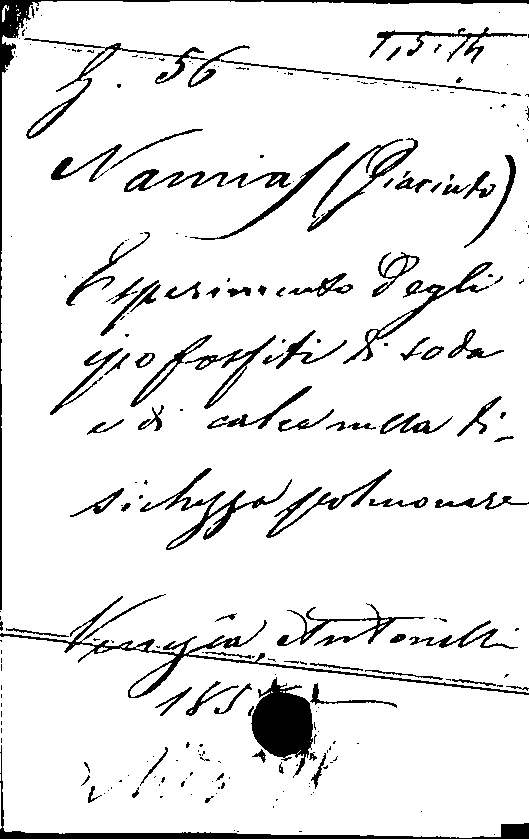 G. 56
Namias (Giacinto)
Esperimento degli
ipofosfiti di soda
e di calce nella ti-
sichezza polmonare
Venezia, Antonelli
185